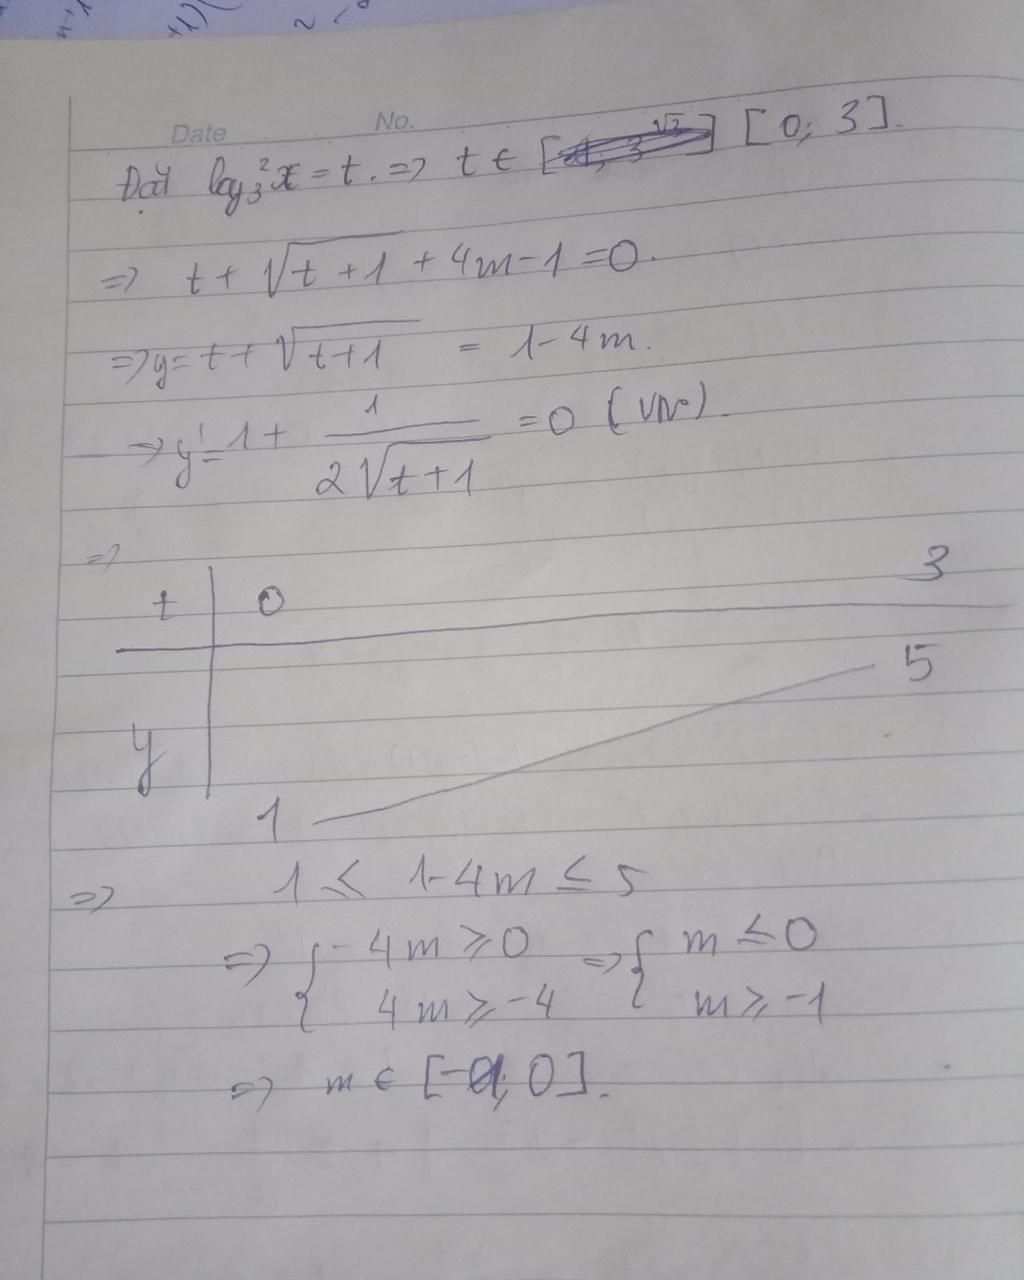 Date No.
Đặt log₃²x = t. => t ∈ [0; 3].
=> t + √(t+1) + 4m - 1 = 0.
=> y = t + √(t+1) = 1 - 4m.
=> y' = 1 + 1/(2√(t+1)) = 0 (VN).
=>
t 0 3
y 1 5
=> 1 ≤ 1-4m ≤ 5
=> { -4m ≥ 0 => { m ≤ 0
4m ≥ -4 m ≥ -1
=> m ∈ [-1; 0].